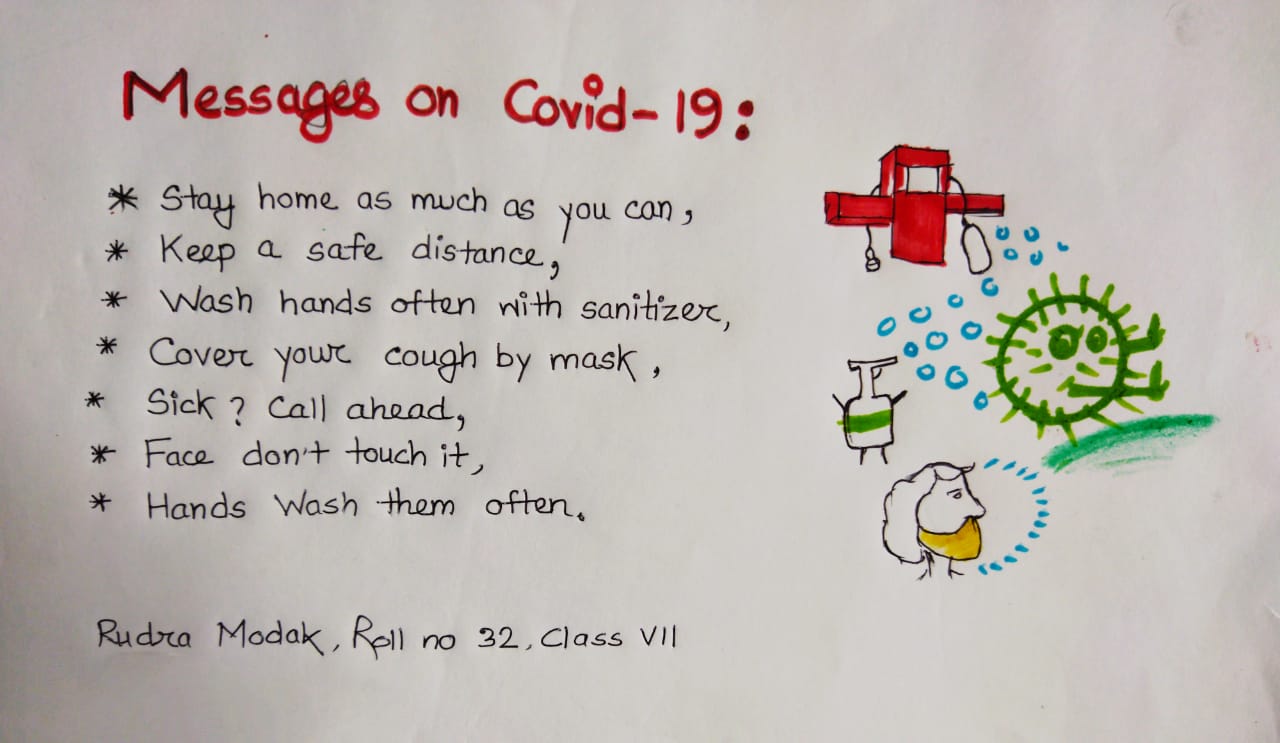 Messages on Covid-19:
* Stay home as much as you can,
* Keep a safe distance,
* Wash hands often with sanitizer,
* Cover your cough by mask,
* Sick? Call ahead,
* Face don't touch it,
* Hands Wash them often.
Rudra Modak, Roll no 32, Class VII